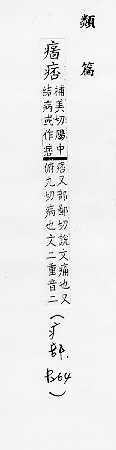 類篇
痞
補美切腸中
結病或作
痞又部鄙切說文痛也又
俯九切病也文二重音二
(疒部.B64)